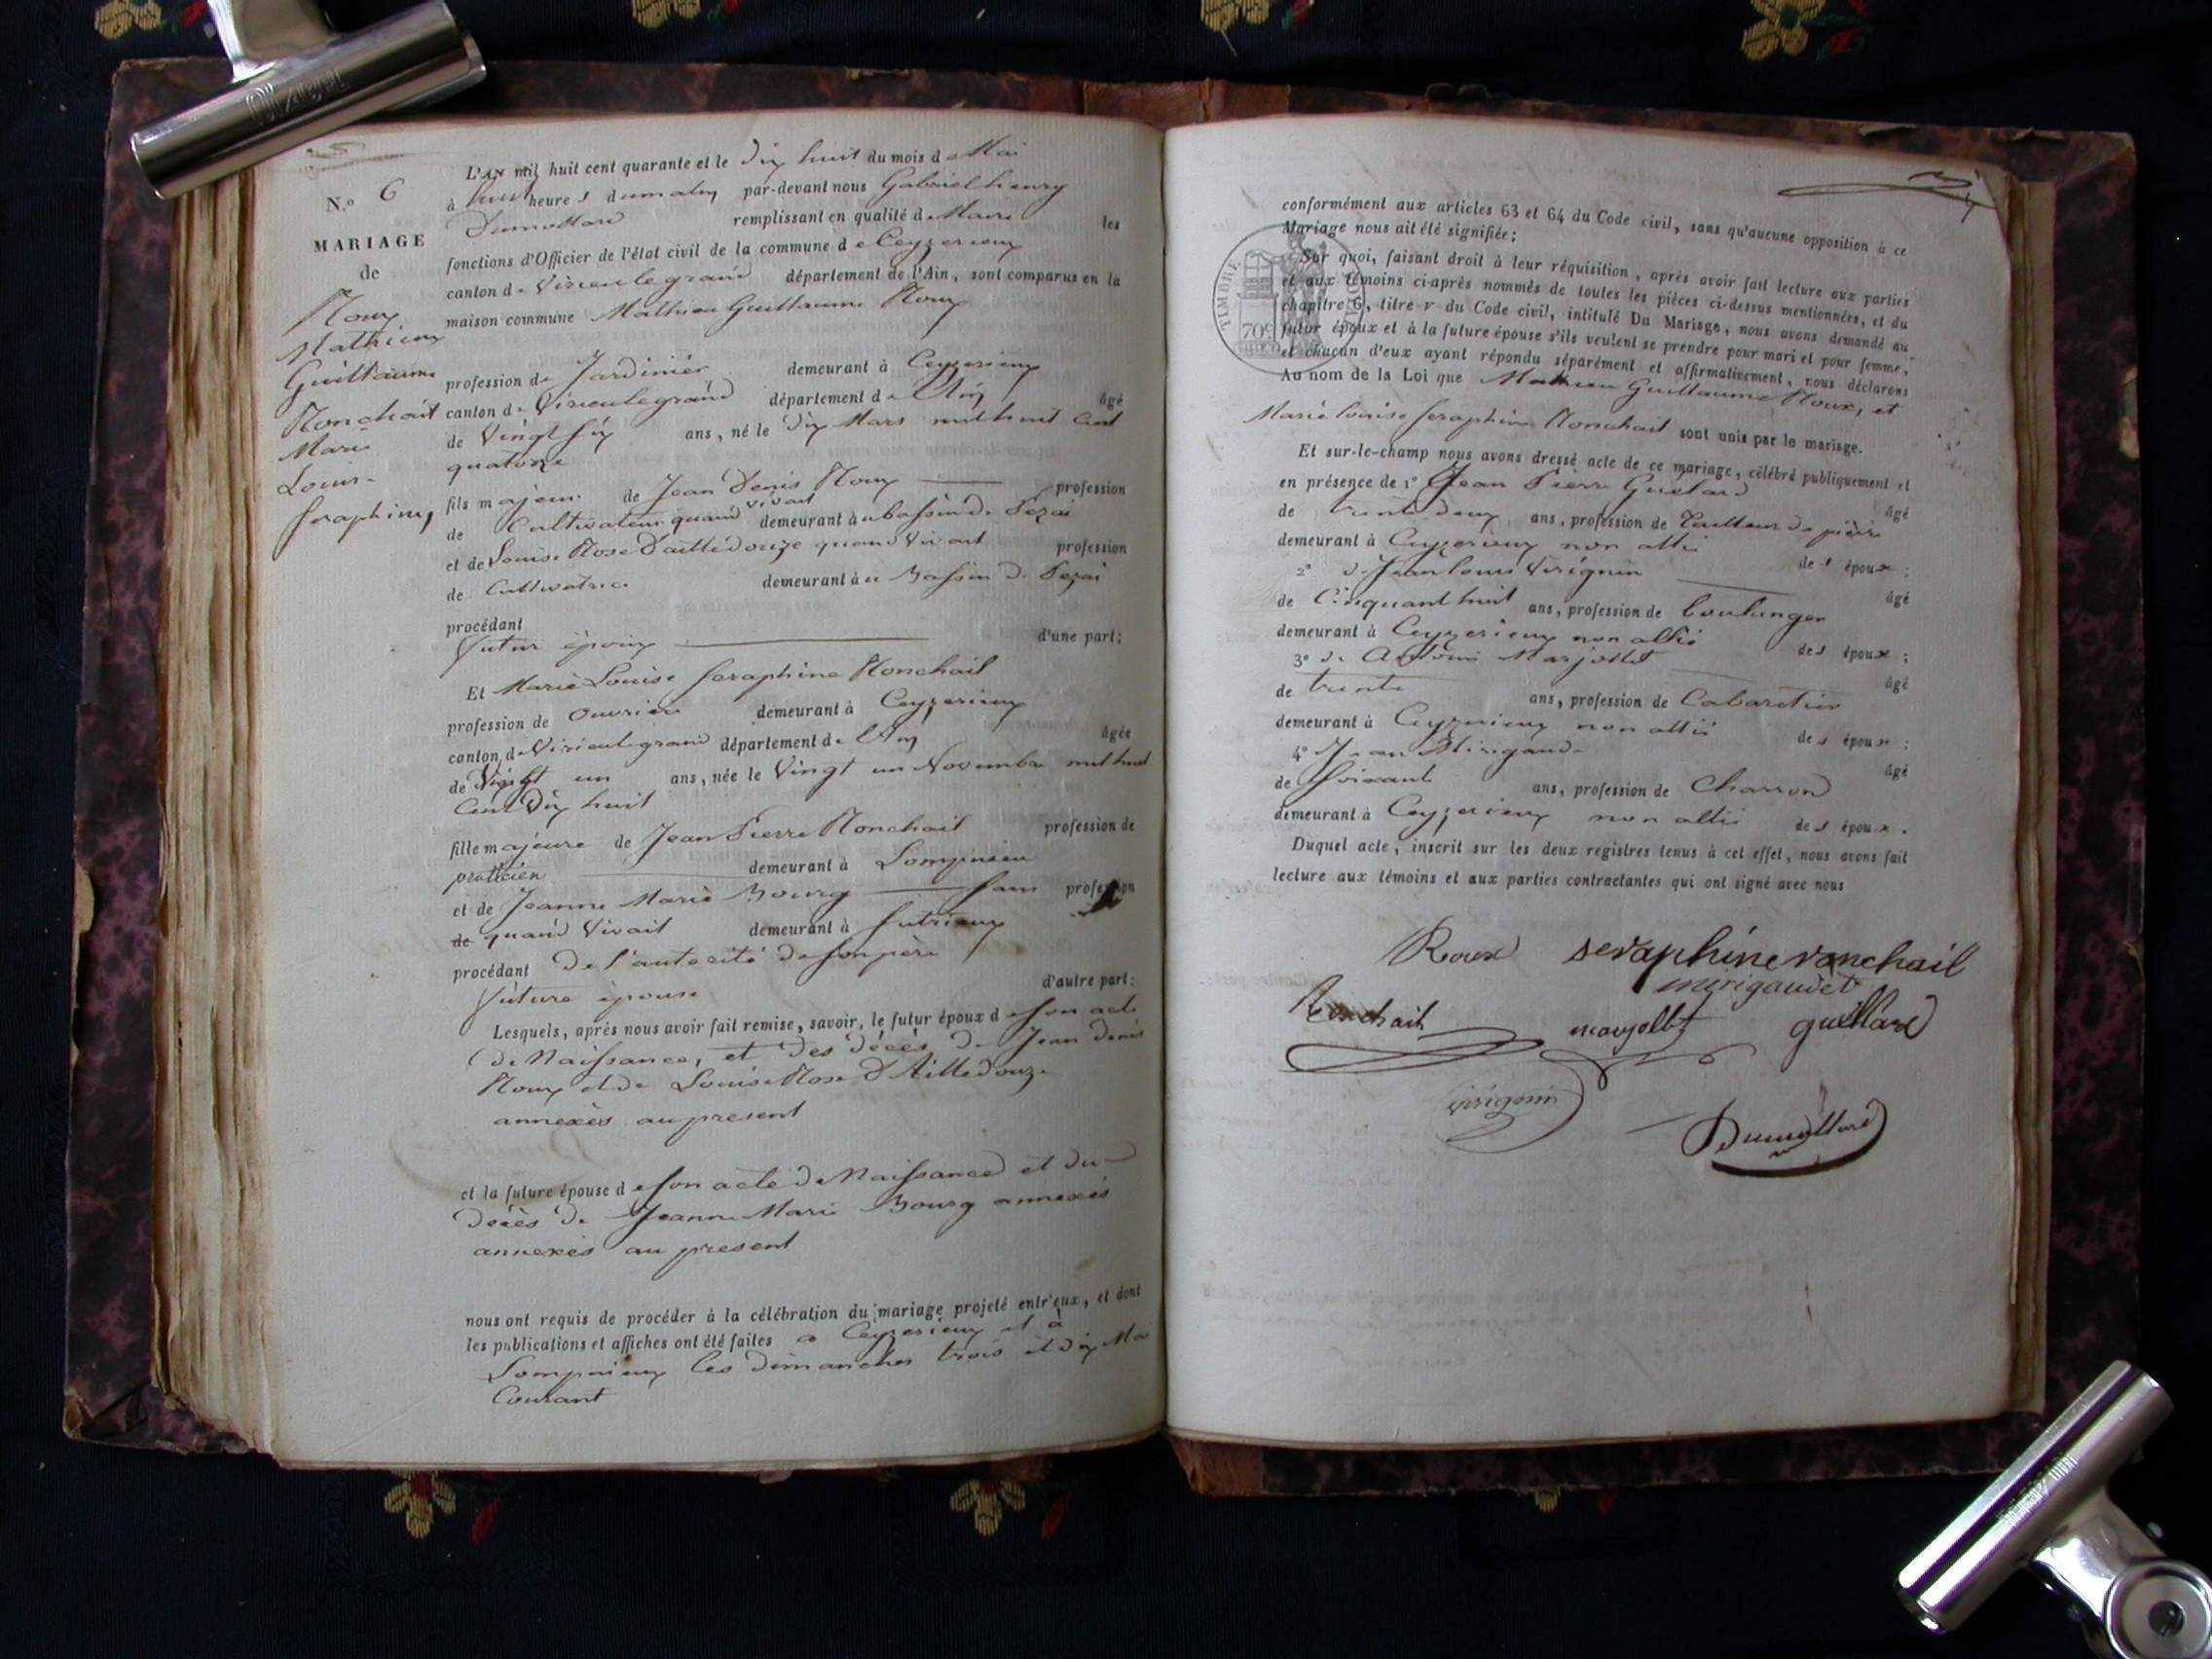 N.º 6
MARIAGE
de
Roux
Mathieux
Guillaume
Ronchail
Marie
Louise
Seraphine
L'AN mil huit cent quarante et le dix huit du mois d e Mai
à huit heure s du matin par-devant nous Gabriel henry
Dumollard remplissant en qualité d e Maire les
fonctions d'Officier de l'état civil de la commune d e Ceyzerieux
canton de Virieulegrand département de l'Ain, sont comparus en la
maison commune Mathieu Guillaume Roux
profession de Jardinier demeurant à Ceyzerieux
canton de Virieulegrand département de l'Ain âgé
de Vingt six ans, né le dix Mars mil huit cent
quatorze
fils majeur de Jean Denis Roux profession
de Cultivateur quand vivait demeurant à u bassin de
et de Louise Rose D'ailledouze quand vivait profession
de Cultivatrice demeurant à u Bassin de
procédant
futur époux d'une part;
Et Marie Louise Seraphine Ronchail
profession de ouvriere demeurant à Ceyzerieux
canton de Virieulegrand département de l'Ain âgée
de Vingt un ans, née le Vingt un Novembre mil huit
Cent Dix huit
fille majeure de Jean Pierre Ronchail profession de
praticien demeurant à Lompnieu
et de Jeanne Marie Bourg Sans profession
de quand Vivait demeurant à Sutrieux
procédant De l'autorité de son père
future épouse d'autre part;
Lesquels, après nous avoir fait remise, savoir, le futur époux d e son acte
de Naissance, et des décès de Jean denis
Roux et de Louise Rose D'Ailledouze
annexés au present
et la future épouse d e son acte de Naissance et du
décès de Jeanne Marie Bourg annexés
annexés au present
nous ont requis de procéder à la célébration du mariage projeté entr'eux, et dont
les publications et affiches ont été faites a Ceyzerieux et à
Lompnieux les dimanches trois et dix Mai
Courant
conformément aux articles 63 et 64 du Code civil, sans qu'aucune opposition à ce
Mariage nous ait été signifiée;
Sur quoi, faisant droit à leur réquisition, après avoir fait lecture aux parties
et aux témoins ci-après nommés de toutes les pièces ci-dessus mentionnées, et du
chapitre 6, titre V du Code civil, intitulé Du Mariage, nous avons demandé au
futur époux et à la future épouse s'ils veulent se prendre pour mari et pour femme;
et chacun d'eux ayant répondu séparément et affirmativement, nous déclarons
Au nom de la Loi que Mathieu Guillaume Roux, et
Marie Louise Seraphine Ronchail sont unis par le mariage.
Et sur-le-champ nous avons dressé acte de ce mariage, célébré publiquement et
en présence de 1º Jean Pierre Guélard
de trente deux ans, profession de Tailleur de pierre âgé
demeurant à Ceyzerieux non allié
2º de Jean louis Virignin des époux;
de Cinquant huit ans, profession de boulanger âgé
demeurant à Ceyzerieux non allié
3º de Antoine Marjollet des époux;
de trente ans, profession de Cabaretier âgé
demeurant à Ceyzerieux non allié
4º Jean Mirigaude des époux;
de Soixant ans, profession de Charron âgé
demeurant à Ceyzerieux non allié des époux.
Duquel acte, inscrit sur les deux registres tenus à cet effet, nous avons fait
lecture aux témoins et aux parties contractantes qui ont signé avec nous
Roux seraphine ronchail
mirigaudet
Ronchail marjollet guillard
virignin
Dumollard
TIMBRE ROYAL
70c